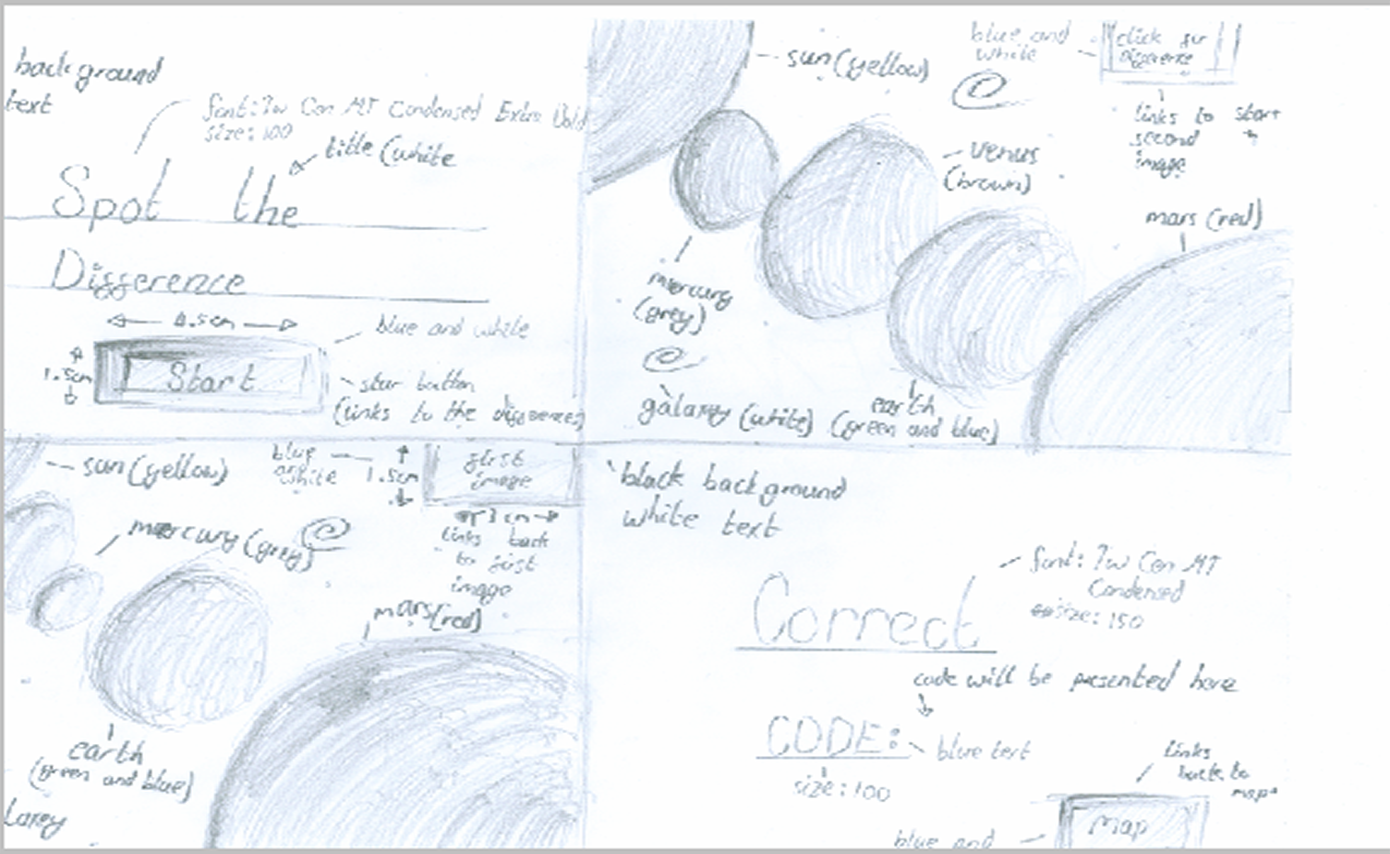 background
text
font: Tw Cen MT Condensed Extra Bold
size: 100
title (white
Spot the
Difference
4.5cm
blue and white
1.5cm
Start
star button
(links to the differences)
sun (yellow)
blue and
white
click for
Difference
links to start
second
image
venus
(brown)
mars (red)
mercury
(grey)
galaxy (white)
earth
(green and blue)
sun (yellow)
blue
white
1.5cm
first
image
3cm
links back
to first
image
mercury (grey)
mars (red)
earth
(green and blue)
laxy
black background
white text
font: Tw Cen MT
Condensed
size: 150
Correct
code will be presented here
CODE:
blue text
size: 100
links
back to
map
Map
blue and